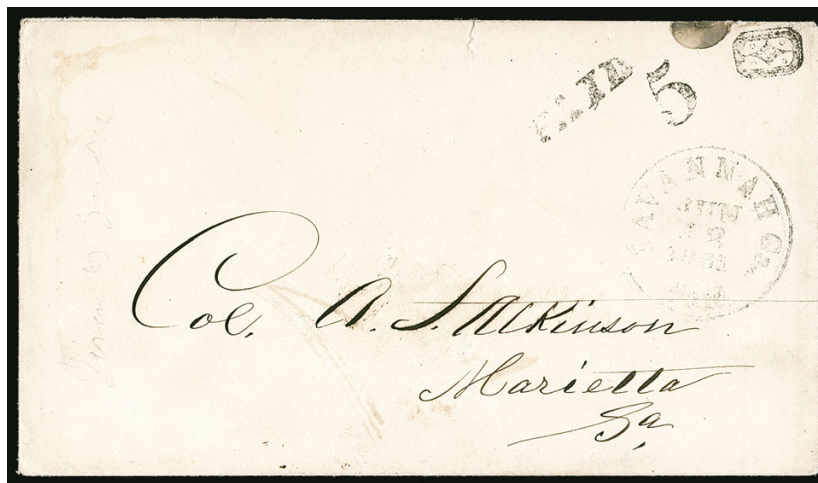 PAID
5
SAVANNAH Ga.
JUN
1861
Col. A. S. Atkinson
Marietta
Ga,